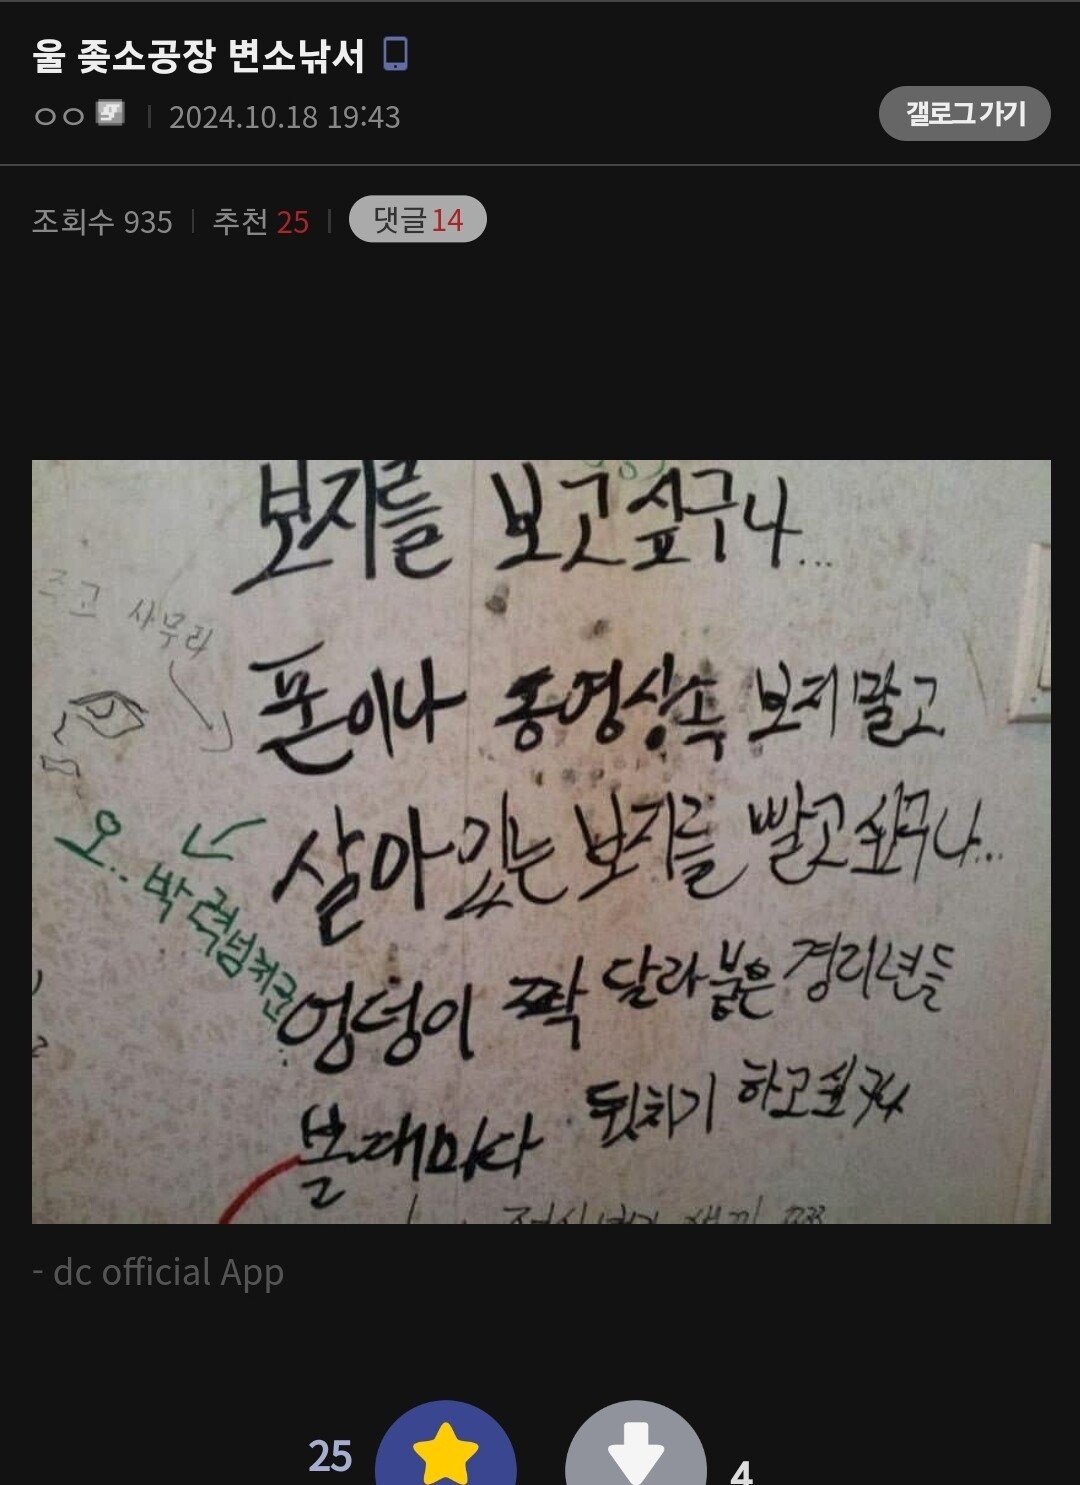 울 좆소공장 변소낚서
ㅇㅇ 2024.10.18 19:43
갤로그 가기
조회수 935 추천 25 댓글 14
보지를 보고싶구나...
주고 사무라
폰이나 동영상속 보지말고
살아있는 보지를 빨고싶구나...
오.. 박력넘치군
엉덩이 짝 달라붙은 경리년들
볼때마다 뒷치기 하고싶구나
- dc official App
25
4